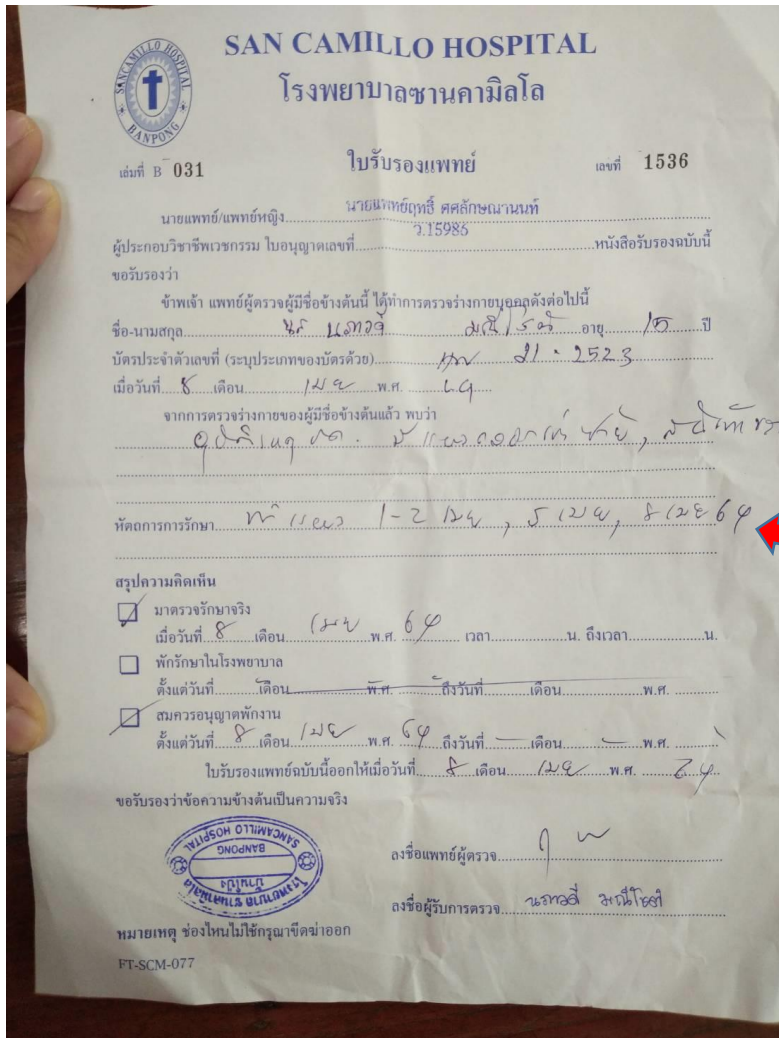 SAN CAMILLO HOSPITAL
โรงพยาบาลซานคามิลโล
SANCAMILLO HOSPITAL
BANPONG
ใบรับรองแพทย์
เล่มที่ B 031
เลขที่ 1536
นายแพทย์/แพทย์หญิง นายแพทย์ฤทธิ์ ศศลักษณานนท์
ผู้ประกอบวิชาชีพเวชกรรม ใบอนุญาตเลขที่ ว.15986 หนังสือรับรองฉบับนี้
ขอรับรองว่า
ข้าพเจ้า แพทย์ผู้ตรวจผู้มีชื่อข้างต้นนี้ ได้ทำการตรวจร่างกายบุคคลดังต่อไปนี้
ชื่อ-นามสกุล นภาวดี มณีโชติ อายุ ปี
บัตรประจำตัวเลขที่ (ระบุประเภทของบัตรด้วย) HN 21-2523
เมื่อวันที่ 8 เดือน เมย พ.ศ.
จากการตรวจร่างกายของผู้มีชื่อข้างต้นแล้ว พบว่า
อุบัติเหตุ
หัตถการการรักษา ทำแผล 1-2 เมย, 5 เมย, 8 เมย 64
สรุปความคิดเห็น
มาตรวจรักษาจริง
เมื่อวันที่ 8 เดือน เมย พ.ศ. 64 เวลา น. ถึงเวลา น.
พักรักษาในโรงพยาบาล
ตั้งแต่วันที่ เดือน พ.ศ. ถึงวันที่ เดือน พ.ศ.
สมควรอนุญาตพักงาน
ตั้งแต่วันที่ 8 เดือน เมย พ.ศ. 64 ถึงวันที่ - เดือน - พ.ศ.
ใบรับรองแพทย์ฉบับนี้ออกให้เมื่อวันที่ 8 เดือน เมย พ.ศ.
ขอรับรองว่าข้อความข้างต้นเป็นความจริง
SANCAMILLO HOSPITAL
BANPONG
บ้านโป่ง
โรงพยาบาลซานคามิลโล
ลงชื่อแพทย์ผู้ตรวจ
ลงชื่อผู้รับการตรวจ นภาวดี มณีโชติ
หมายเหตุ ช่องไหนไม่ใช้กรุณาขีดฆ่าออก
FT-SCM-077